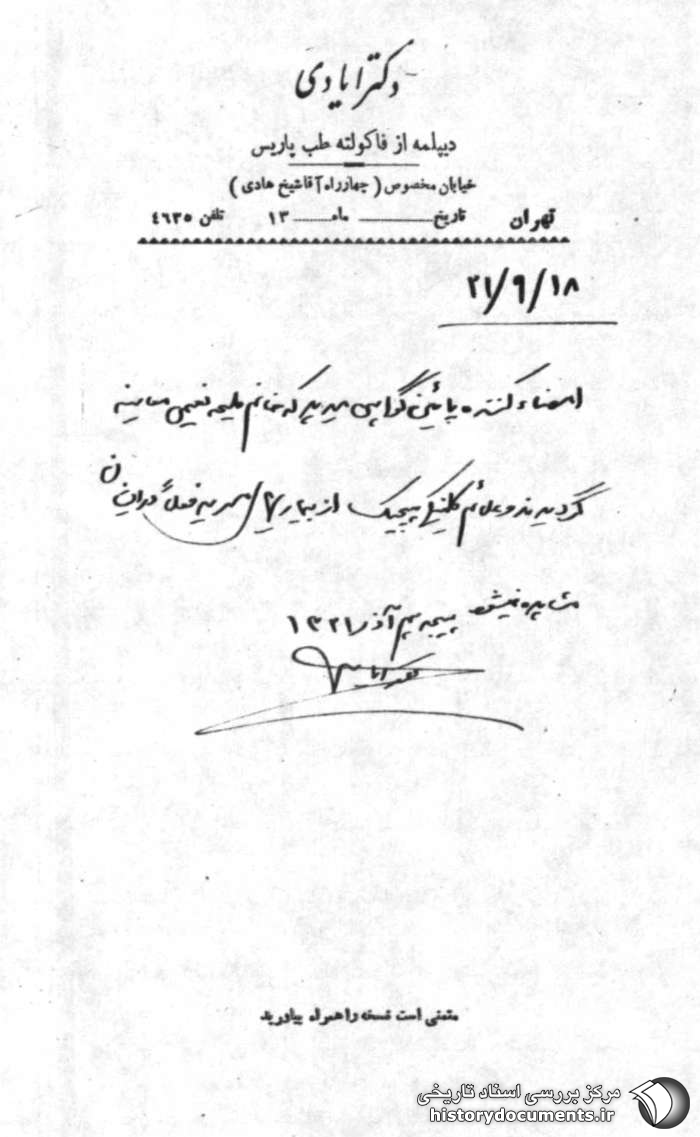 دکتر ایادی
دیپلمه از فاکولته طب پاریس
خیابان مخصوص ( چهارراه آقاشیخ هادی )
تهران تاریخ ــــــ ماه ــــــ ۱۳ تلفن ٤٦٣٥
۲۱/۹/۱۸
امضاء کننده پائین گواهی میدهد که خانم ملیحه نعیمی معاینه
گردیدند و علائم کلینیکی هیچیک از بیماریهای مسریه فعلاً در ایشان
مشاهده نمیشود هیجدهم آذر ۱۳۲۱
دکتر ایادی
متمنی است نسخه را همراه بیاورید
مرکز بررسی اسناد تاریخی
historydocuments.ir